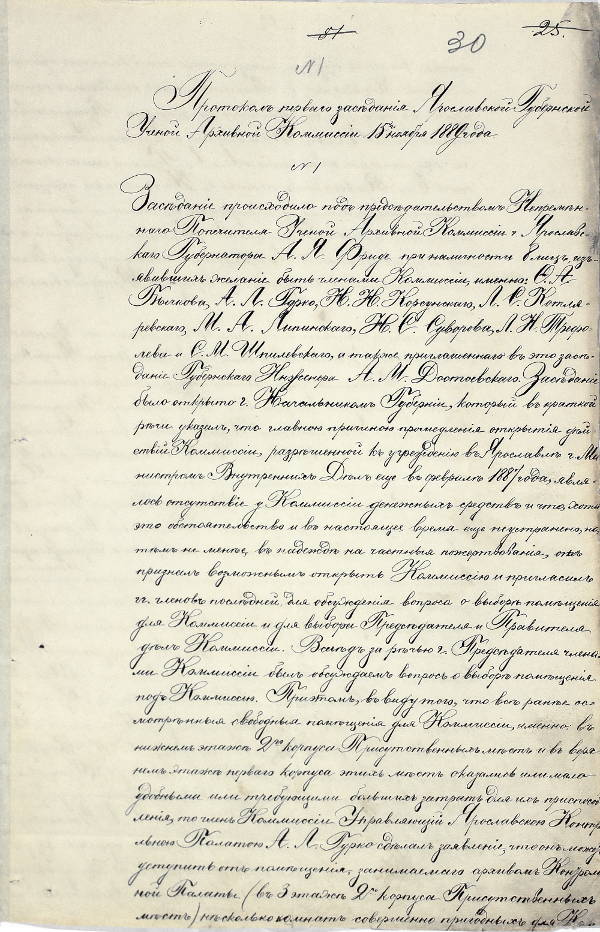 81 25.
30
№1
Протоколъ перваго засѣданія Ярославской Губернской
Ученой Архивной Коммиссіи 15 ноября 1889 года.
№1
Засѣданіе происходило подъ предсѣдательствомъ Непремѣн-
наго Попечителя Ученой Архивной Коммиссіи г. Ярославс-
каго Губернатора А. Я. Фриде при наличности 8 лицъ, изъ-
явившихъ желаніе быть членами Коммиссіи, именно: Ѳ. А.
Бычкова, А. Л. Гурко, Н. Н. Корсунскаго, Л. С. Котля-
ревскаго, М. А. Липинскаго, Н. С. Суворова, Л. Н. Трефо-
лева и С. М. Шпилевскаго, а также приглашеннаго въ это засѣ-
даніе Губернскаго Инженера А. М. Достоевскаго. Засѣданіе
было открыто г. Начальникомъ Губерніи, который въ краткой
рѣчи указалъ, что главною причиною промедленія открытія дѣй-
ствій Коммиссіи, разрѣшенной къ учрежденію въ Ярославлѣ г. Ми-
нистромъ Внутреннихъ Дѣлъ еще въ февралѣ 1887 года, явля-
лось отсутствіе у Коммиссіи денежныхъ средствъ и что, хотя
это обстоятельство и въ настоящее время еще неустранено, но,
тѣмъ не менѣе, въ надеждѣ на частныя пожертвованія, онъ
призналъ возможнымъ открыть Коммиссію и пригласилъ
гг. членовъ послѣдней для обсужденія вопроса о выборѣ помѣщенія
для Коммиссіи и для выбора Предсѣдателя и Правителя
дѣлъ Коммиссіи. Вслѣдъ за рѣчью г. Предсѣдателя члена-
ми Коммиссіи былъ обсуждаемъ вопросъ о выборѣ помѣщенія
подъ Коммиссію. Притомъ, въ виду того, что всѣ ранѣе ос-
мотрѣнныя свободныя помѣщенія для Коммиссіи, именно: въ
нижнемъ этажѣ 2го корпуса Присутственныхъ мѣстъ и въ верх-
немъ этажѣ перваго корпуса этихъ мѣстъ оказались или мало
удобными или требующими большихъ затратъ для ихъ приспособ-
ленія, то членъ Коммиссіи Управляющій Ярославскою Контроль-
ною Палатою А. Л. Гурко сдѣлалъ заявленіе, что онъ можетъ
уступить отъ помѣщенія, занимаемаго архивомъ Контроль-
ной Палаты (въ 3 этажѣ 2го корпуса Присутственныхъ
мѣстъ) нѣсколько комнатъ совершенно пригодныхъ для